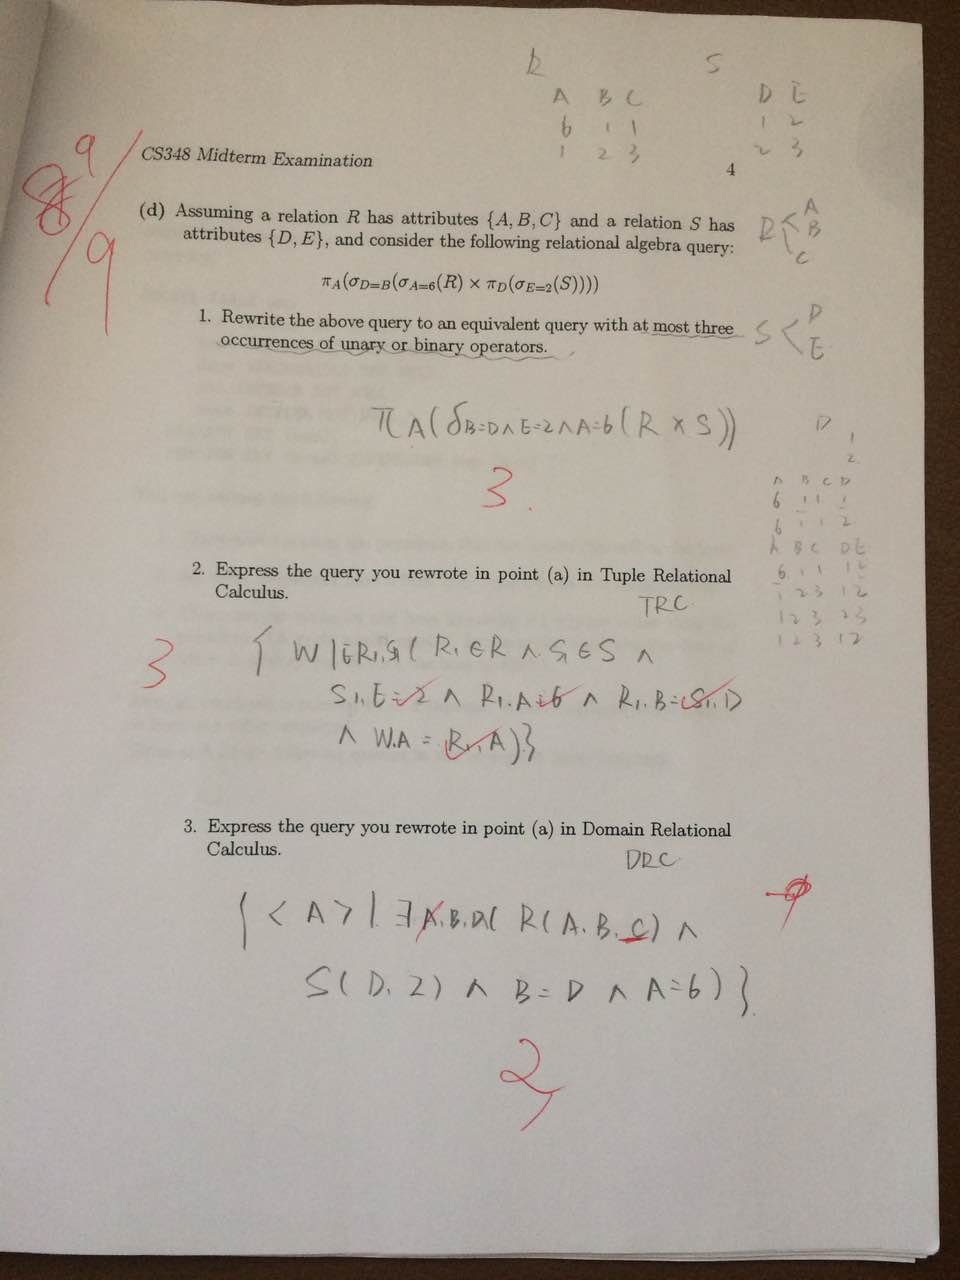 R S
A B C D E
6 1 1 1 2
1 2 3 2 3
9
8
/
9
CS348 Midterm Examination
4
(d) Assuming a relation R has attributes {A, B, C} and a relation S has
attributes {D, E}, and consider the following relational algebra query:
R < A
B
C
π_A(σ_{D=B}(σ_{A=6}(R) × π_D(σ_{E=2}(S))))
1. Rewrite the above query to an equivalent query with at most three
occurrences of unary or binary operators.
S < D
E
π A(δ B=D∧E=2∧A=6 (R × S))
3.
D
1
2
A B C D
6 1 1 1
6 1 1 2
A B C D E
6 1 1 1 2
1 2 3 1 2
1 2 3 2 3
1 2 3 1 2
2. Express the query you rewrote in point (a) in Tuple Relational
Calculus.
TRC
3
{ W | ∃R₁,S₁( R₁ ∈ R ∧ S₁ ∈ S ∧
S₁.E=2 ∧ R₁.A=6 ∧ R₁.B=S₁.D
∧ W.A = R₁.A)}
3. Express the query you rewrote in point (a) in Domain Relational
Calculus.
DRC
{ < A > | ∃ A,B,D( R(A,B,C) ∧
S(D,2) ∧ B=D ∧ A=6)}
2